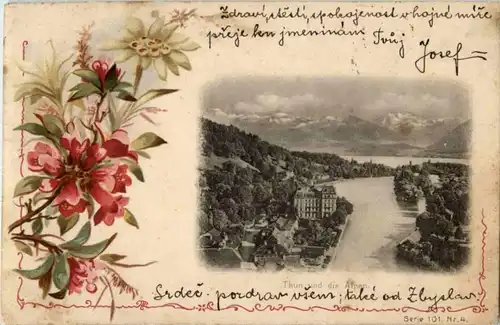 Zdraví, štěstí, spokojenost v hojné míře
přeje ku jmeninám Tvůj
Josef
Thun und die Alpen.
Srdeč. pozdrav všem; také od Zbyslav.
Serie 101. Nr. 4.